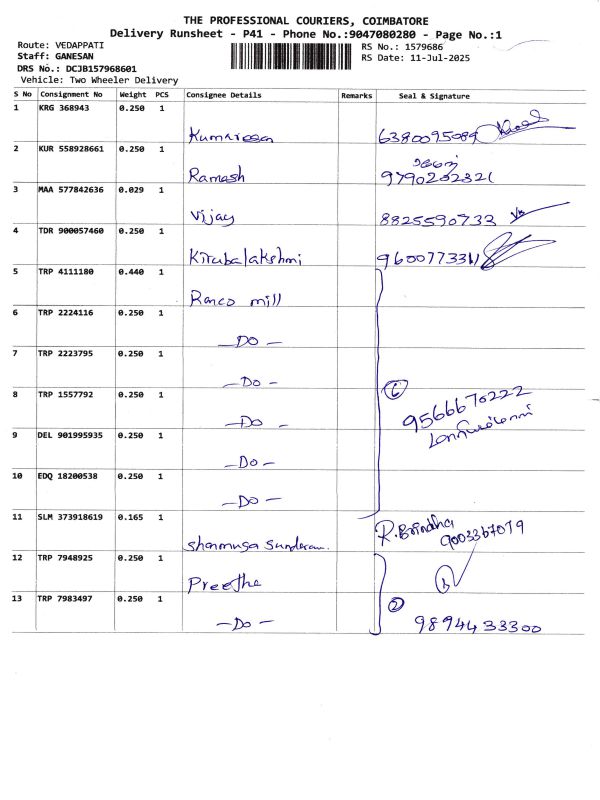 THE PROFESSIONAL COURIERS, COIMBATORE
Delivery Runsheet - P41 - Phone No.:9047080280 - Page No.:1
Route: VEDAPPATI RS No.: 1579686
Staff: GANESAN RS Date: 11-Jul-2025
DRS No.: DCJB157968601
Vehicle: Two Wheeler Delivery
S No Consignment No Weight PCS Consignee Details Remarks Seal & Signature
1 KRG 368943 0.250 1
Kumaresan 6380095089
2 KUR 558928661 0.250 1
Ramash 9790232321
3 MAA 577842636 0.029 1
Vijay 8825590733
4 TDR 900057460 0.250 1
Kirubalakshmi 9600773311
5 TRP 4111180 0.440 1
Ranco mill
6 TRP 2224116 0.250 1
-Do-
7 TRP 2223795 0.250 1
-Do- 6
8 TRP 1557792 0.250 1 9566670222
-Do-
9 DEL 901995935 0.250 1
-Do-
10 EDQ 18200538 0.250 1
-Do-
11 SLM 373918619 0.165 1 R. Brindha
Shanmuga Sundaram. 9003367079
12 TRP 7948925 0.250 1
Preetha
13 TRP 7983497 0.250 1 2
-Do- 9894433300